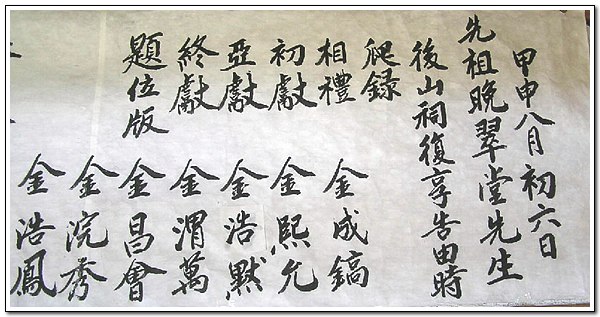 甲申八月初六日
先祖晩翠堂先生
後山祠復享告由時
爬錄
相禮 金成鎬
初獻 金熙允
亞獻 金浩默
終獻 金渭萬
題位版 金昌會
金浣秀
金浩鳳